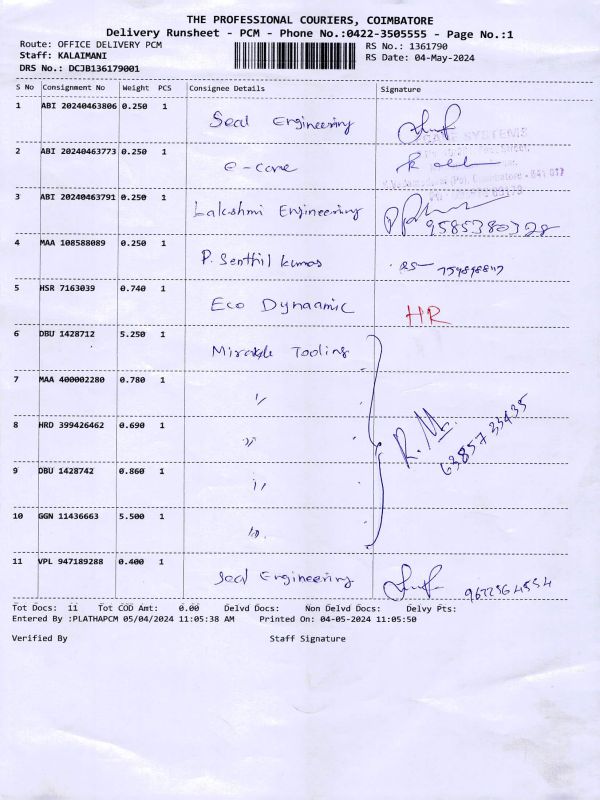 THE PROFESSIONAL COURIERS, COIMBATORE
Delivery Runsheet - PCM - Phone No.:0422-3505555 - Page No.:1
Route: OFFICE DELIVERY PCM
RS No.: 1361790
Staff: KALAIMANI
RS Date: 04-May-2024
DRS No.: DCJB136179001
S No Consignment No Weight PCS Consignee Details Signature
1 ABI 20240463806 0.250 1 Seal Engineering
SYSTEMS
2 ABI 20240463773 0.250 1 e-care
Coimbatore - 641 017
3 ABI 20240463791 0.250 1 Lakshmi Engineering 9585380328
4 MAA 108588089 0.250 1 P. Senthil kumar
5 HSR 7163039 0.740 1 Eco Dynaamic HR
6 DBU 1428712 5.250 1 Mirakle Tooling
7 MAA 400002280 0.780 1 "
8 HRD 399426462 0.690 1 " R. M. 6385733435
9 DBU 1428742 0.860 1 "
10 GGN 11436663 5.500 1 "
11 VPL 947189288 0.400 1 Seal Engineering
Tot Docs: 11 Tot COD Amt: 0.00 Delvd Docs: Non Delvd Docs: Delvy Pts:
Entered By :PLATHAPCM 05/04/2024 11:05:38 AM Printed On: 04-05-2024 11:05:50
Verified By Staff Signature